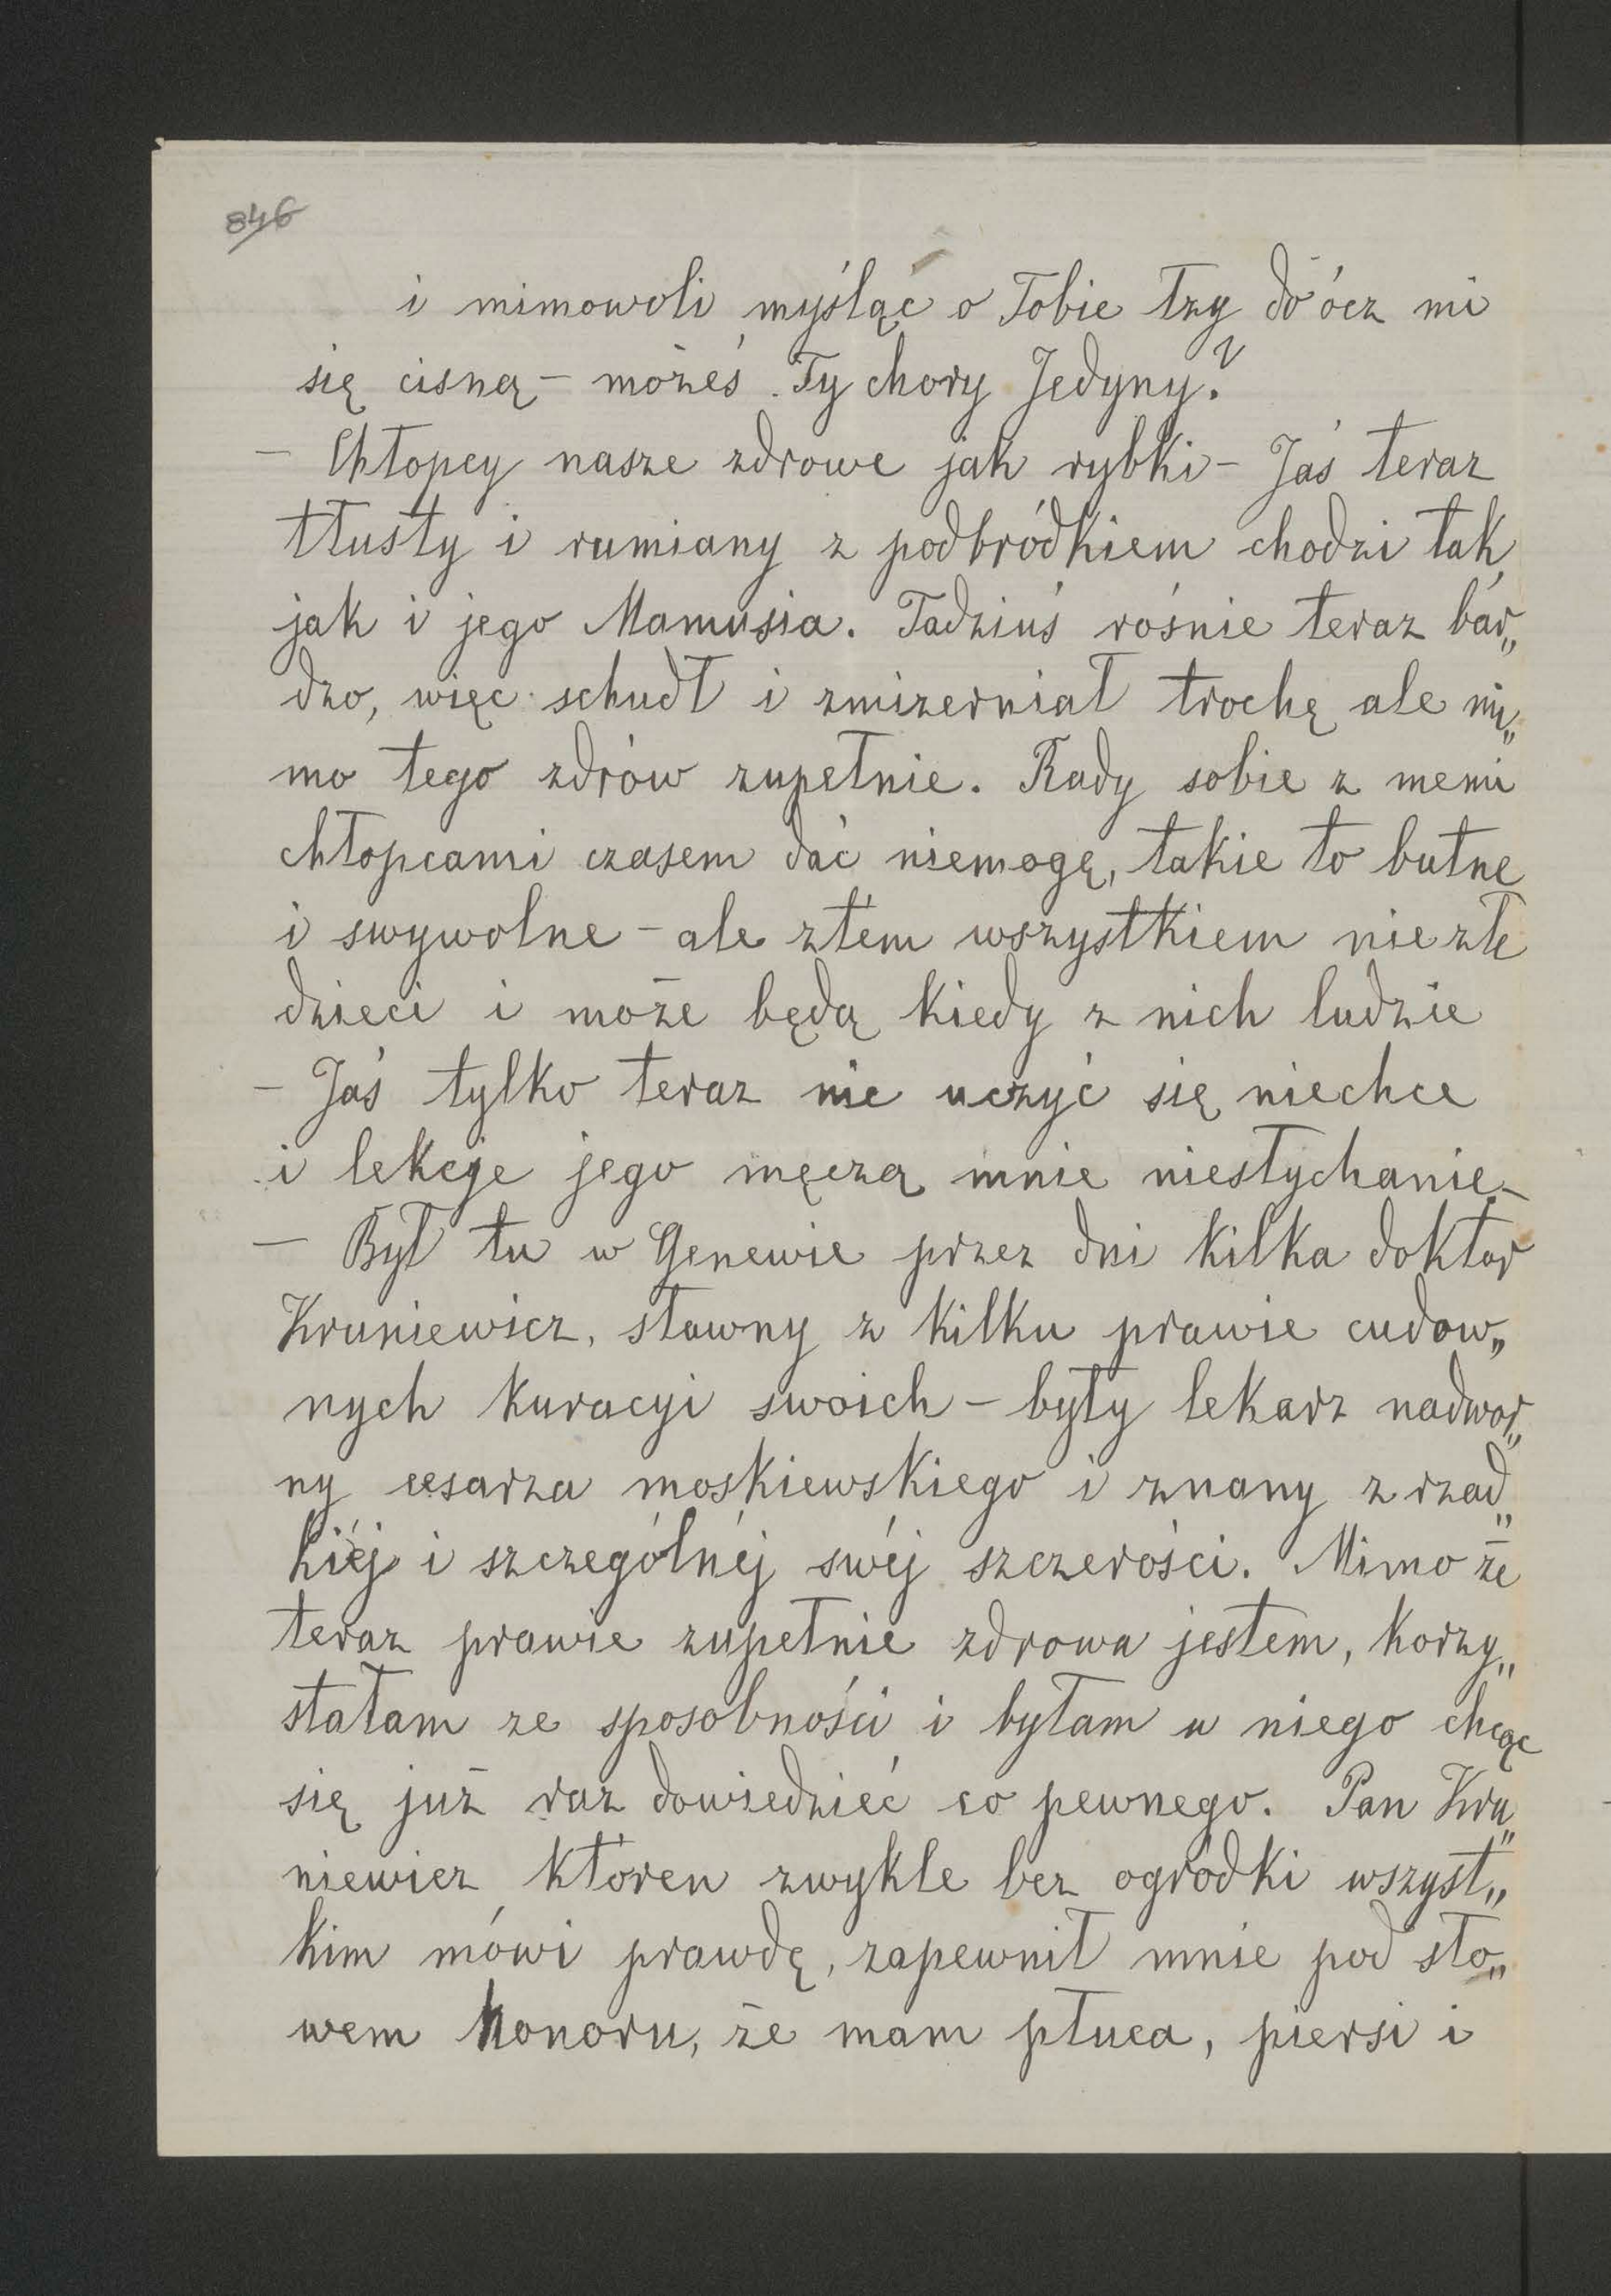 846
i mimowoli myśląc o Tobie łzy do ócz mi
się cisną – możeś Ty chory Jedyny?
– Chłopcy nasze zdrowe jak rybki – Jaś teraz
tłusty i rumiany z podbródkiem chodzi tak
jak i jego Mamusia. Tadziuś rośnie teraz bar„
dzo, więc schudł i zmizerniał trochę ale mi„
mo tego zdrów zupełnie. Rady sobie z memi
chłopcami czasem dać niemogę, takie to butne
i swywolne – ale ztém wszystkiem nie złe
dzieci i może będą kiedy z nich ludzie
– Jaś tylko teraz nic uczyć się niechce
i lekcje jego męczą mnie niesłychanie –
– Był tu w Genewie przez dni kilka doktor
Kruniewicz, sławny z kilku prawie cudow„
nych kuracyi swoich – były lekarz nadwor„
ny cesarza moskiewskiego i znany z rzad„
kiéj i szczególnéj swéj szczerości. Mimo że
teraz prawie zupełnie zdrowa jestem, korzy„
stałam ze sposobności i byłam u niego chcąc
się już raz dowiedzieć co pewnego. Pan Kru„
niewicz któren zwykle bez ogródki wszyst„
kim mówi prawdę, zapewnił mnie pod sło„
wem honoru, że mam płuca, piersi i